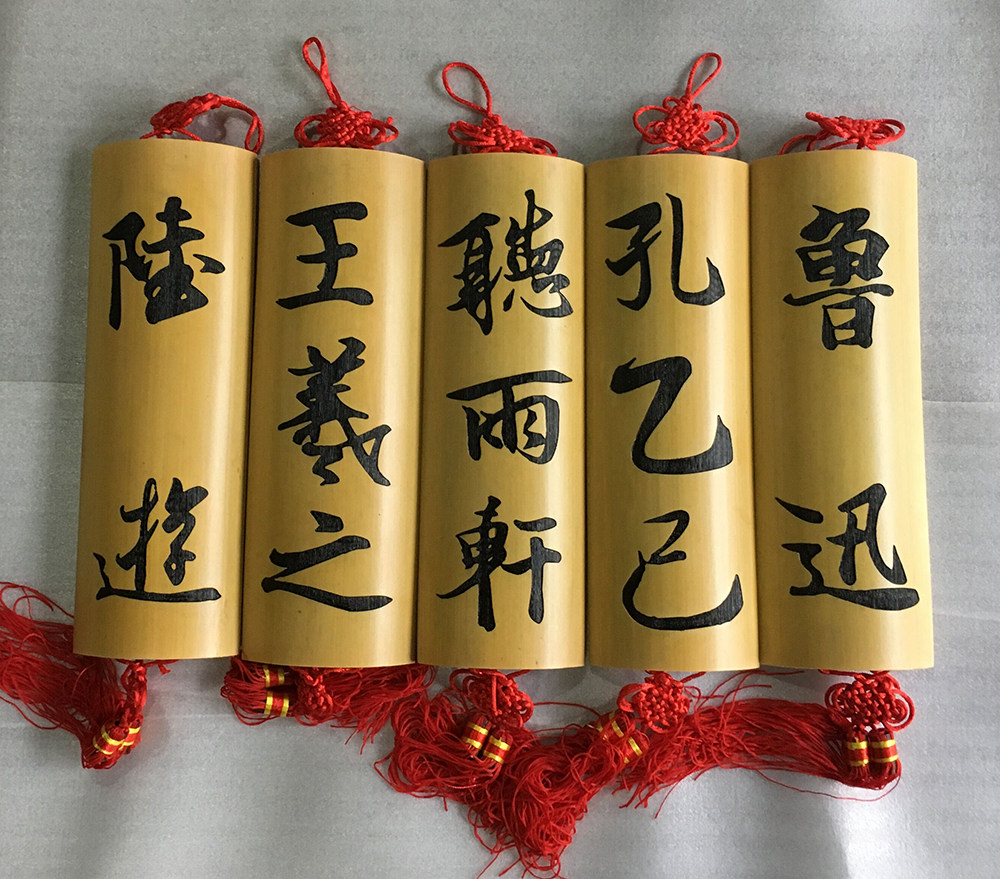 陸遊
王羲之
聽雨軒
孔乙己
魯迅